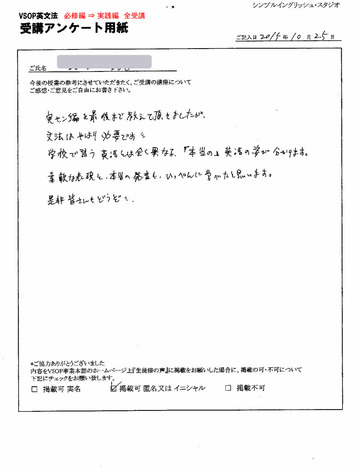 シンプルイングリッシュ・スタジオ
VSOP英文法 必修編 ⇒ 実践編 全受講
受講アンケート用紙
ご記入日 2015年10月25日
ご氏名
今後の授業の参考にさせていただきたく、ご受講の講座について
ご感想・ご意見をご自由にお書き下さい。
実セン編を最後まで教えて頂きましたが、
文法はやはり必要です
学校で習う英語とは全く異なる、「本当の」英語の姿が分かります。
柔軟な表現と、本当の発音も、いっぺんに学べたと思います。
是非皆さんもどうぞ
*ご協力ありがとうございました
内容をVSOP事業本部のホームページ上『生徒様の声』に掲載をお願いした場合に、掲載の可・不可について
下記にチェックをお願い致します。
□ 掲載可 実名 ☑ 掲載可 匿名又は イニシャル □ 掲載不可